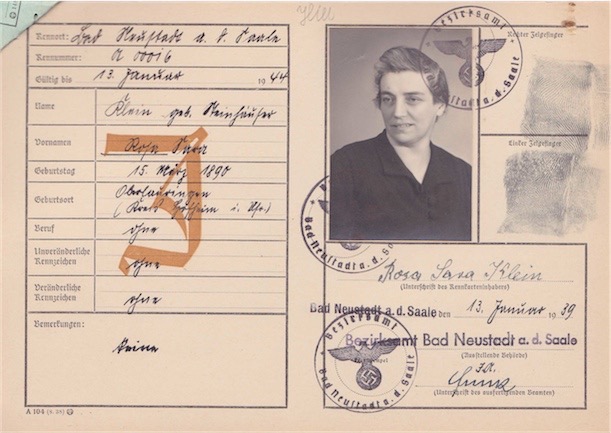 Kennort: Bad Neustadt a. d. Saale
Kennummer: A 00016
Gültig bis 13. Januar 1944
Name Klein geb. Steinhäuser
Vornamen Rosa Sara
Geburtstag 15. März 1890
Geburtsort Oberlauringen
(Kreis Hofheim i. Ufr.)
Beruf ohne
Unveränderliche Kennzeichen ohne
Veränderliche Kennzeichen ohne
Bemerkungen:
keine
A 104 (8. 38)
J
Bezirksamt
Bad Neustadt a. d. Saale
Rechter Zeigefinger
Linker Zeigefinger
Bad Neustadt a. d. Saale
Rosa Sara Klein
(Unterschrift des Kennkarteninhabers)
Bad Neustadt a. d. Saale den 13. Januar 1939
Bezirksamt Bad Neustadt a. d. Saale
(Ausstellende Behörde)
Bezirksamt
Bad Neustadt a. d. Saale
(Unterschrift des ausfertigenden Beamten)